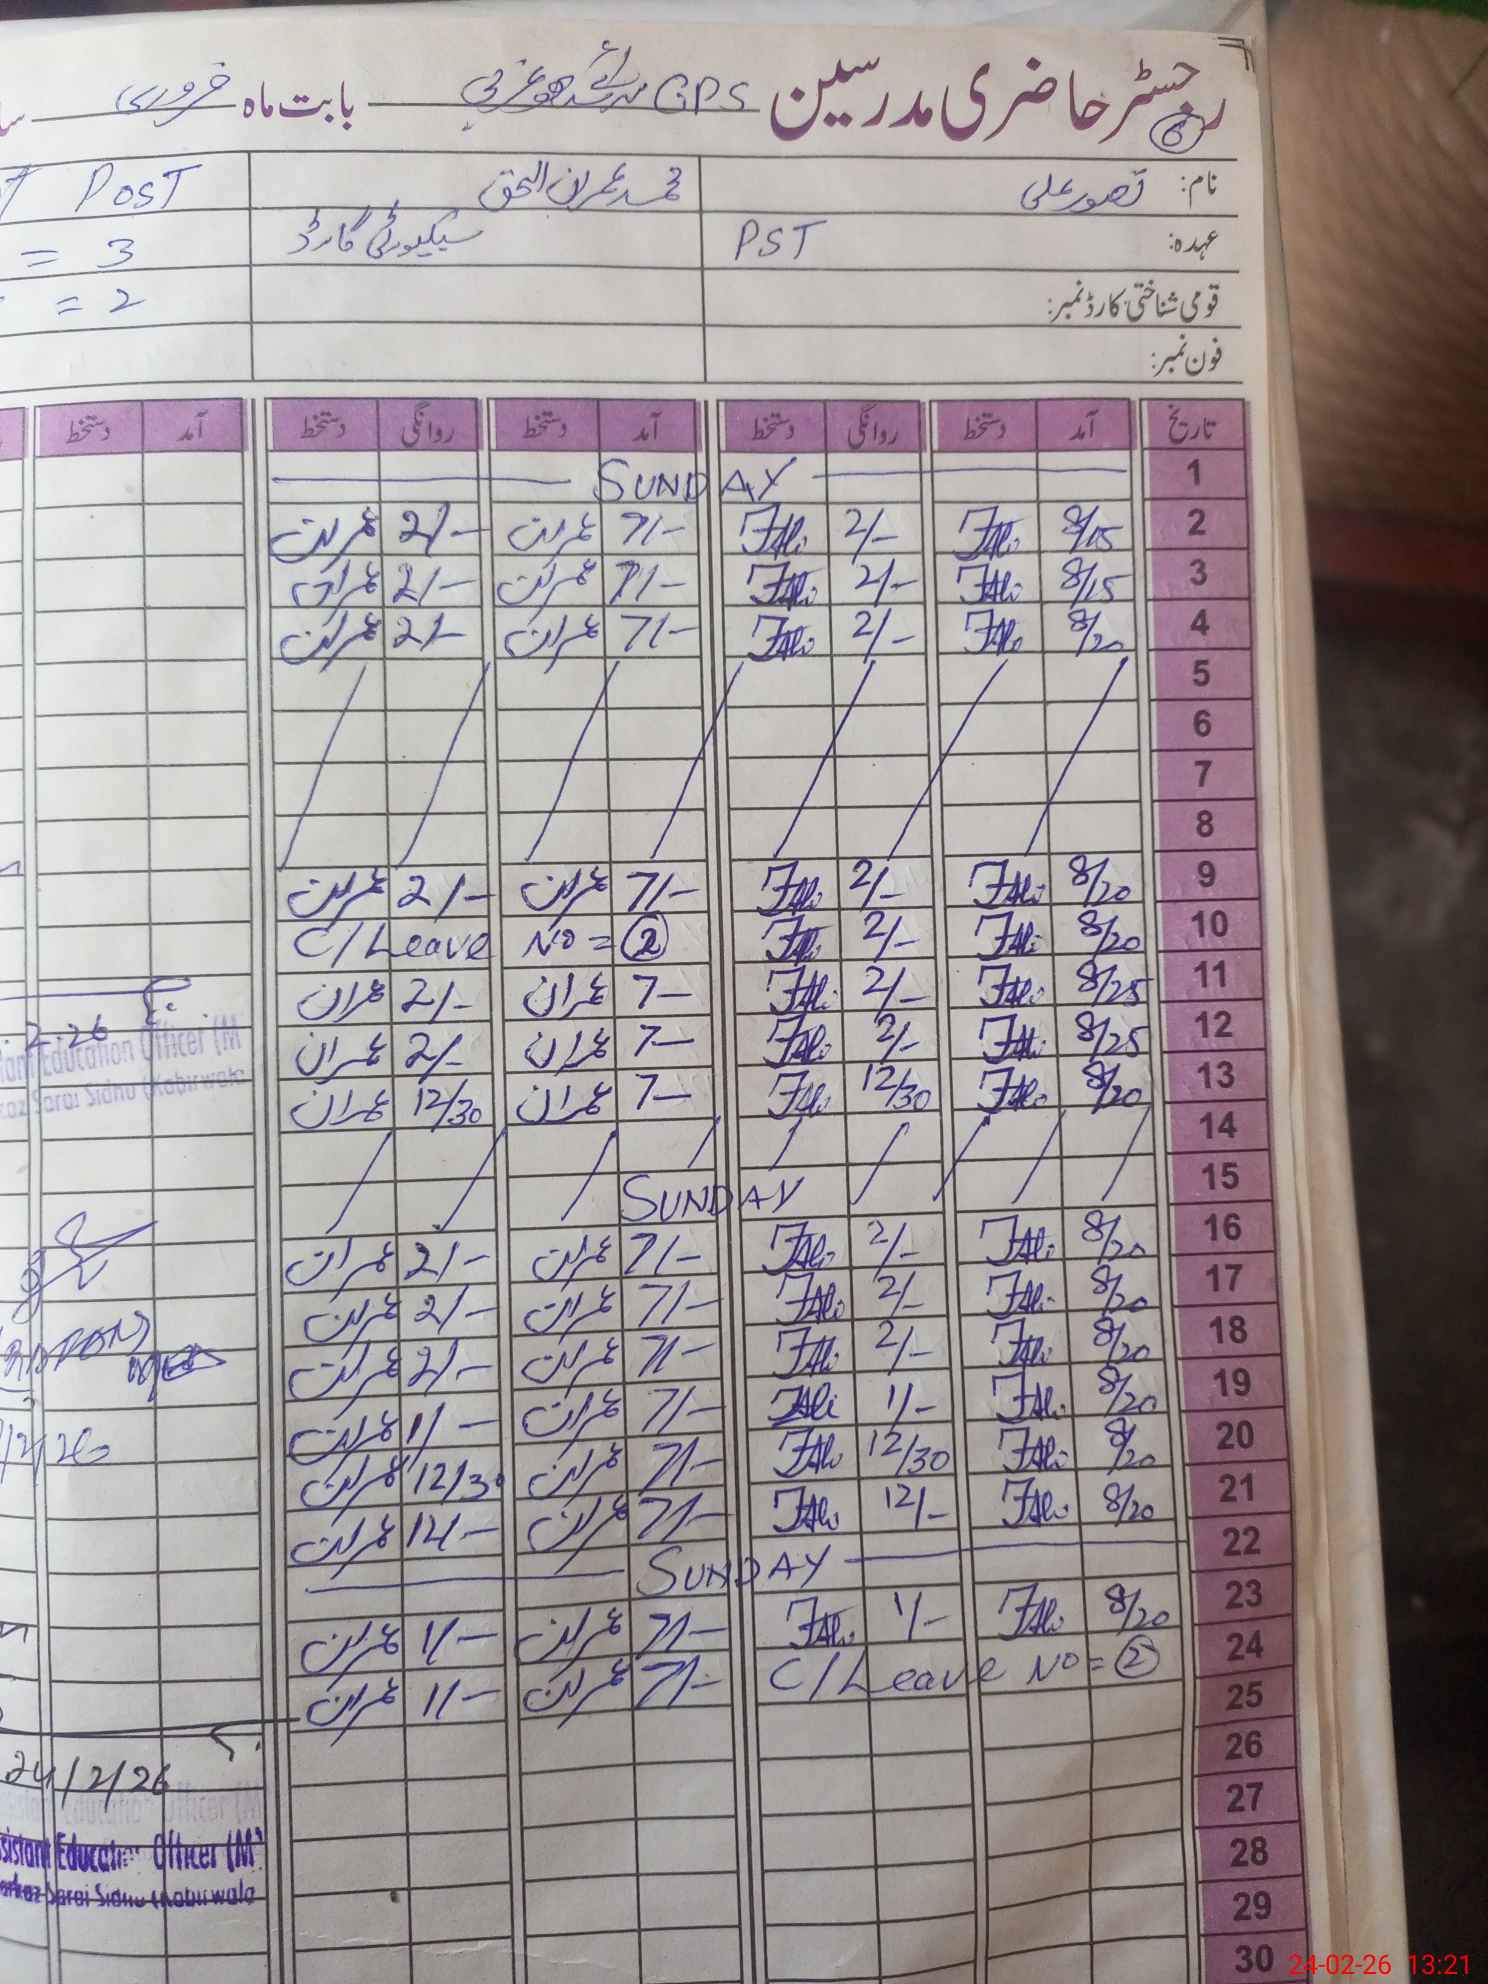 رجسٹر حاضری مدرسین GPS سرائے سدھو غربی بابت ماہ فروری
6
نام: تصور علی محمد عمران الحق POST
عہدہ: PST سیکیورٹی گارڈ = 3
قومی شناختی کارڈ نمبر: = 2
فون نمبر:
تاریخ آمد دستخط روانگی دستخط آمد دستخط روانگی دستخط آمد دستخط
1 SUNDAY
2 8/15 TAli 2/- TAli 7/- عمران 2/- عمران
3 8/15 TAli 2/- TAli 7/- عمران 2/- عمران
4 8/20 TAli 2/- TAli 7/- عمران 2/- عمران
5
6
7
8
9 8/20 TAli 2/- TAli 7/- عمران 2/- عمران
10 8/20 TAli 2/- TAli C/Leave No = 2
11 8/25 TAli 2/- TAli 7- عمران 2/- عمران
12 8/25 TAli 2/- TAli 7- عمران 2/- عمران
13 8/20 TAli 12/30 TAli 7- عمران 12/30 عمران
14
15 SUNDAY
16 8/20 TAli 2/- TAli 7/- عمران 2/- عمران
17 8/20 TAli 2/- TAli 7/- عمران 2/- عمران
18 8/20 TAli 2/- TAli 7/- عمران 2/- عمران
19 8/20 TAli 1/- TAli 7/- عمران 1/- عمران
20 8/20 TAli 12/30 TAli 7/- عمران 12/30 عمران
21 8/20 TAli 12/- TAli 7/- عمران 12/- عمران
22 SUNDAY
23 8/20 TAli 1/- TAli 7/- عمران 1/- عمران
24 C/Leave No = 2 7/- عمران 1/- عمران
25
26
27
28
29
30
2-26
Education Officer (M
Sarai Sidhu (Kabirwala
24/2/26
Education Officer (M
Sarai Sidhu (Kabirwala
24-02-26 13:21